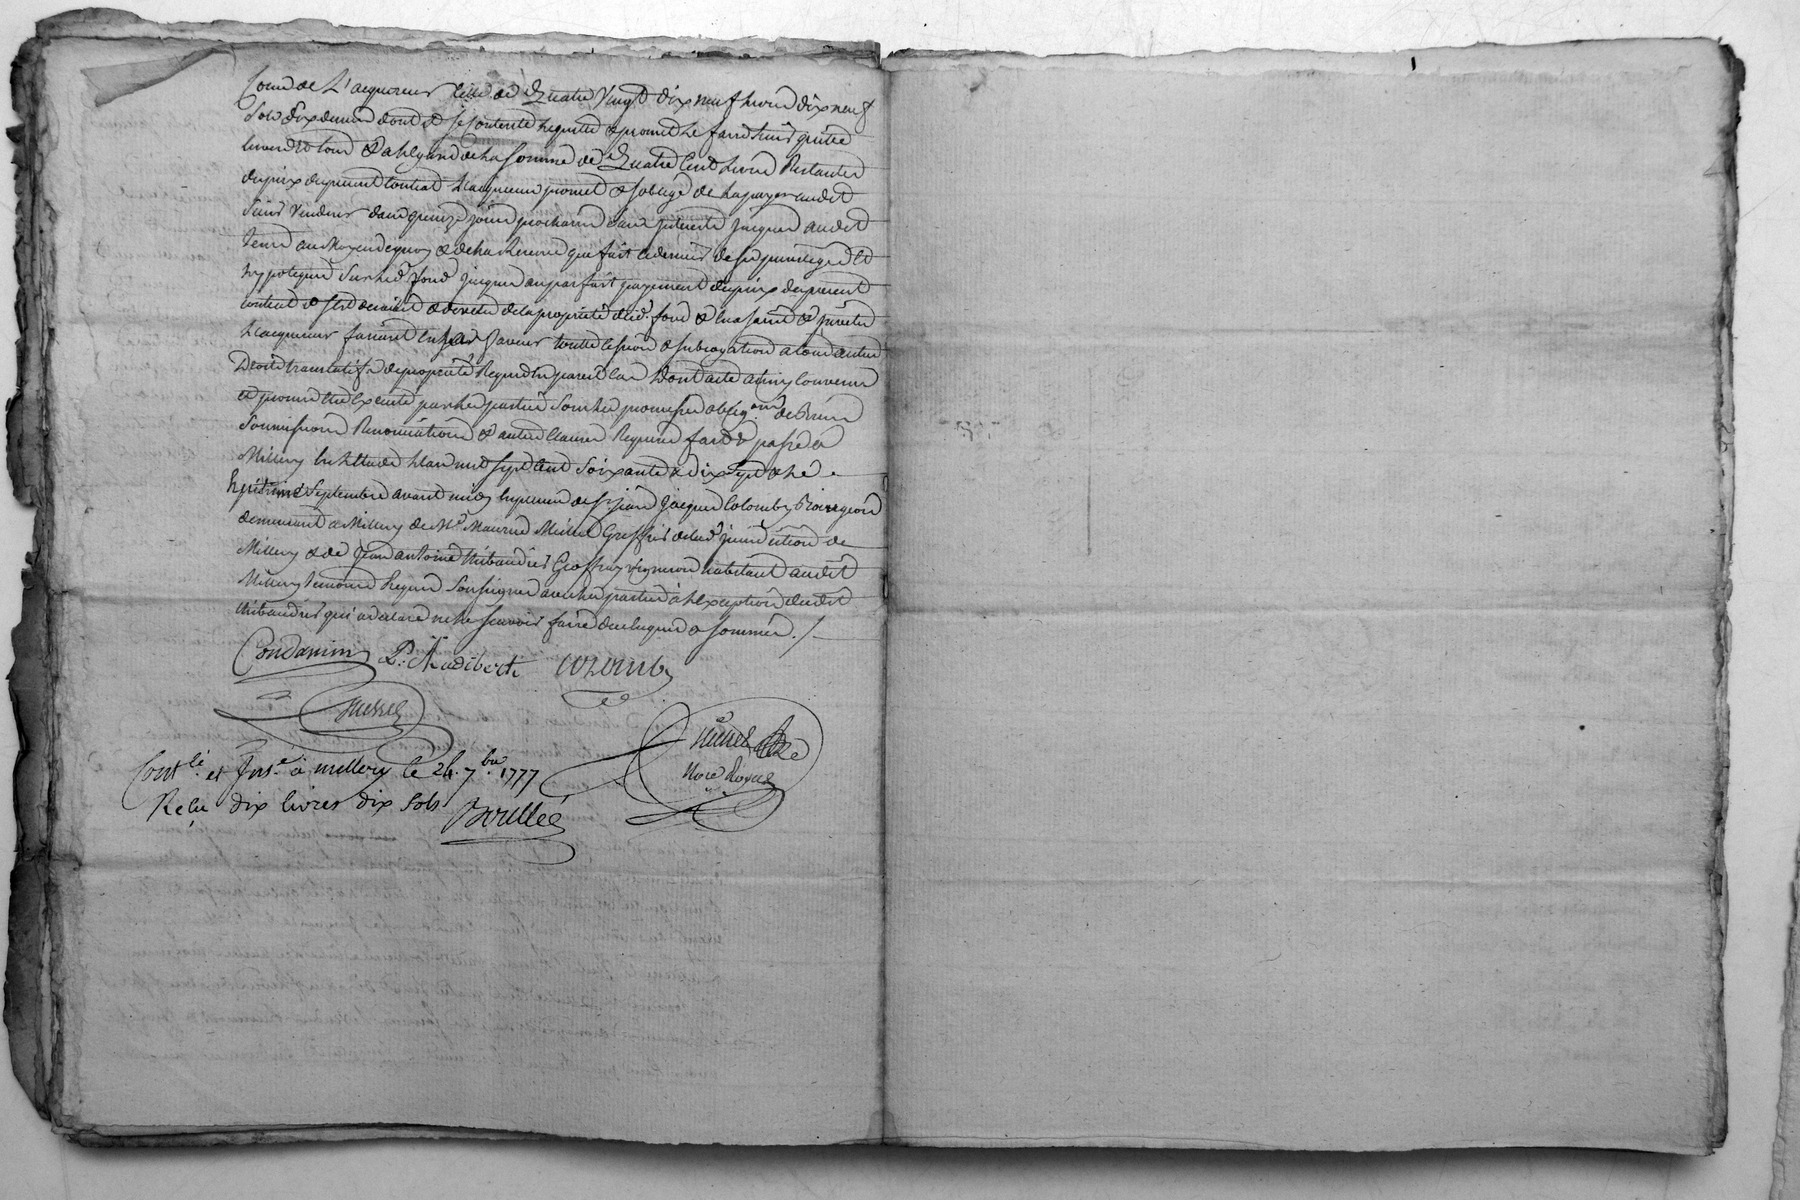 Comd de L'acquereur celle de Quatre Vingt dix neuf livres dix neuf
Sols dix deniers dont il se contente Lequitte & promet Le faire tenir quitte
envers & tous & al'egard de la somme de Quatre Cent Livres Restantes
du prix du present Contrat L'acquereur promet & soblige de la payer audit
Sieur Vendeur dans quinze jours prochains sans jnterets jusques audit
tems au Moyen dequoy & de la Reserve que fait cedernier de ses privileges &
hypoteques Sur led. fond jusques au parfait payement du prix du present
contrat il s'est devestu de la proprieté dud. fond & en a saisi & jnvestu
L'acquereur faisant en sa faveur toutte cession & subrogation a tous autres
Droits translatifs de proprieté Requis en pareil Cas Dont acte ainsy Convenu
et promis etre Executé par les parties Sous les promesses obligons. de Biens
Soumissions Renonciations & autres Clauses Requises fait & passé a
Millery En L'Etude L'an mil sept Cent Soixante & dix Sept & Le
huitieme Septembre avant midy En presence de sr. jean jacques Colomby Bourgeois
demeurant a Millery de Me. Maurice Michel Greffier delad. jurisdiction de
Millery & de Jean antoine thibaudier Geoffray vigneron habitant audit
Millery temoins Requis Soussignés avec les parties a L'exception dudit
thibaudier qui a declaré ne le scavoir faire de ce Enquis & sommé ./.
Condamin P. Audibert colomby
Michel
Michel
Nore Royal
Contlé et Inse à millery le 24. 7bre 1777
Reçu dix livres dix sols Boullée